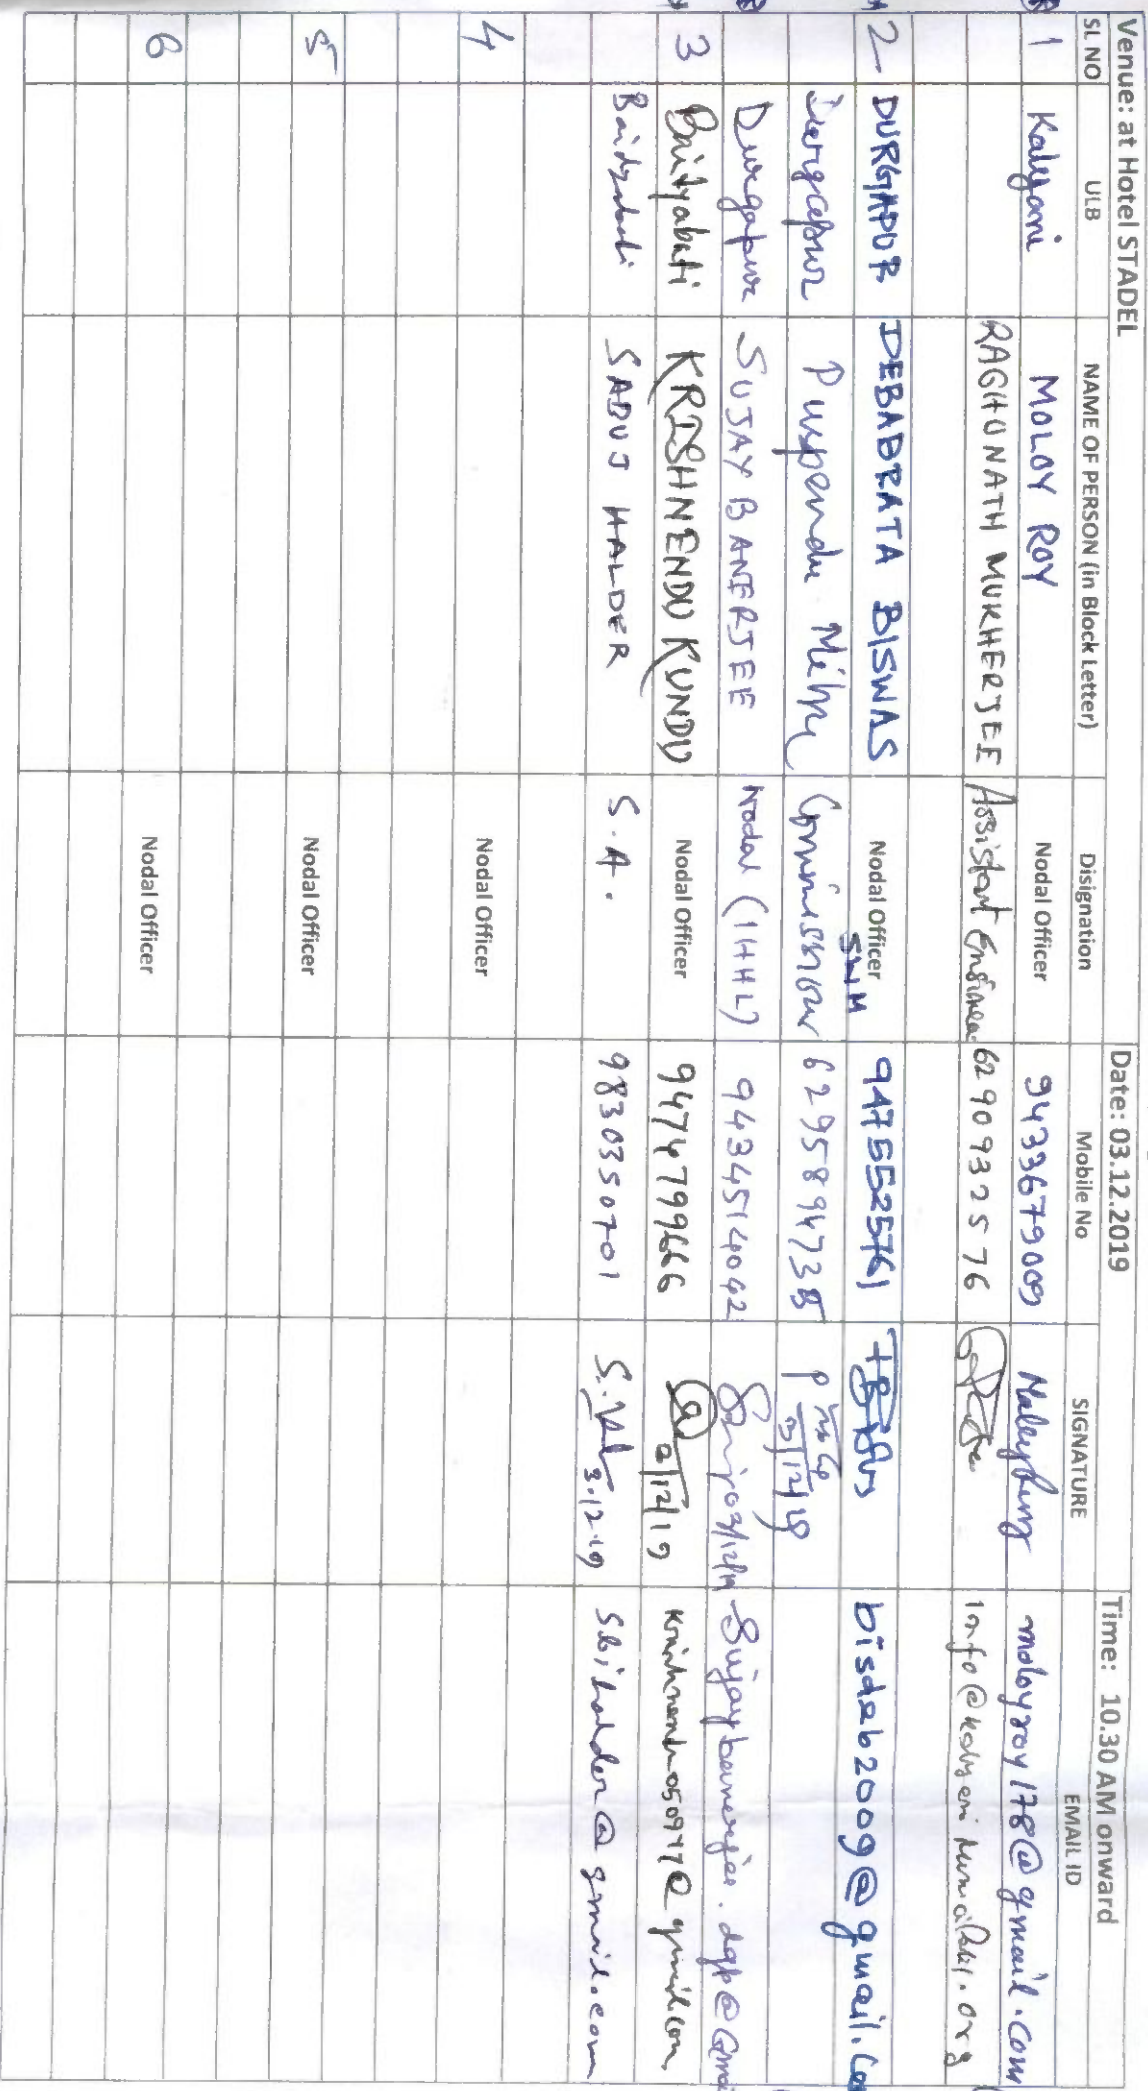 Venue: at Hotel STADEL Date: 03.12.2019 Time: 10.30 AM onward
SL NO ULB NAME OF PERSON (in Block Letter) Disignation Mobile No SIGNATURE EMAIL ID
1 Kalyani MOLOY ROY Nodal Officer 9433679009 moloyroy178@gmail.com
RAGHUNATH MUKHERJEE Assistant Engineer 6290932576
2 DURGAPUR DEBABRATA BISWAS Nodal Officer SWM 9475525761 bisdeb2009@gmail.com
Durgapur Puspendu Commissioner
Durgapur SUJAY BANERJEE Nodal (IHHL) 9434514042 03/12/19 Sujaybanerjee.dgp@Gmai
3 Baidyabati KRISHNENDU KUNDU Nodal Officer 9474799666
Baidyabati SABUJ HALDER S.A. 9830350701 3.12.19
4 Nodal Officer
5 Nodal Officer
6 Nodal Officer